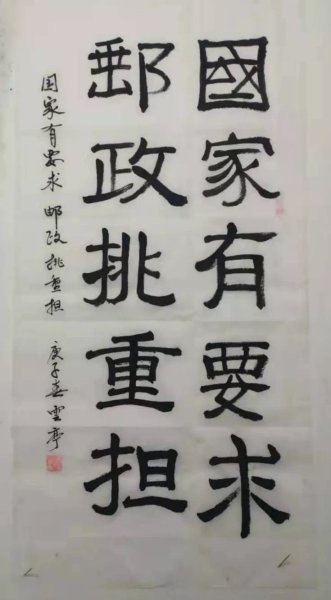 國家有要求
郵政挑重担
国家有要求 邮政挑重担 庚子春雲亭